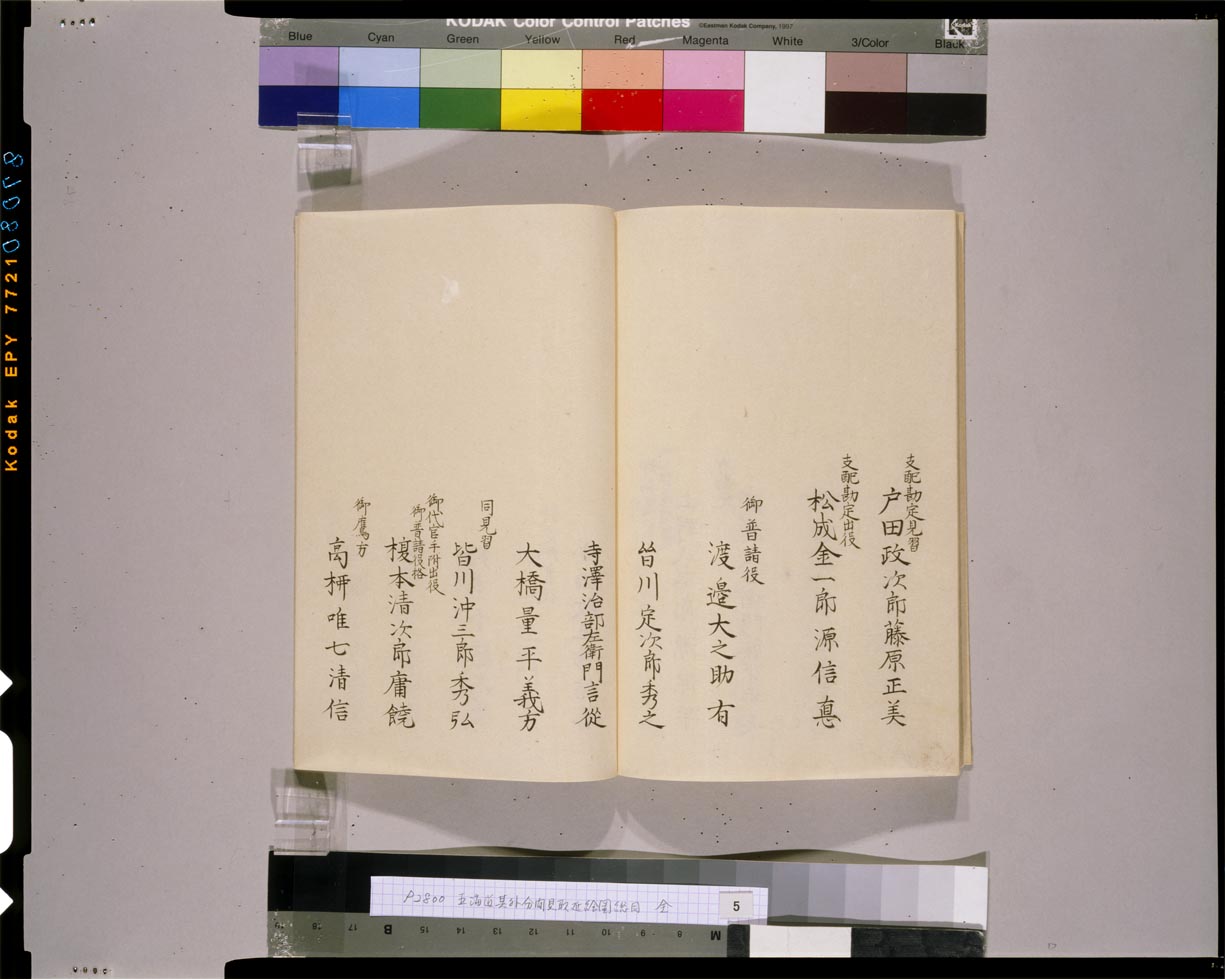 KODAK Color Control Patches
©Eastman Kodak Company, 1997
Blue Cyan Green Yellow Red Magenta White 3/Color Black
Kodak EPY 7721 08078
支配勘定見習
戸田政次郎藤原正美
支配勘定出役
松成金一郎源信
御普請役
渡邉大之助有
皆川定次郎秀之
寺澤治部左衛門言從
大橋量平義方
同見習
皆川沖三郎秀弘
御代官手附出役
御普請役格
榎本清次郎庸饒
御鷹方
高栁唯七清信
P2800 五海道其外分間見取延絵図総目 全
5
19 18 17 B 15 14 13 12 11 10 9 8 M